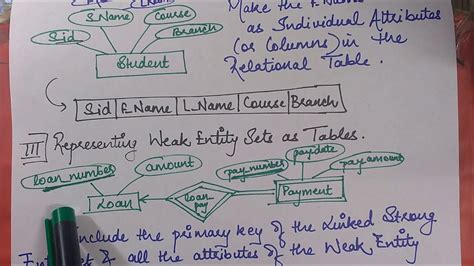 L_Name
S_Name Course
Make the F_Name
S_id Branch
as Individual Attributes
(or Columns) in the
Student
Relational Table.
S_id F_Name L_Name Course Branch
III Representing Weak Entity Sets as Tables.
loan_number amount pay_number paydate pay_amount
Loan loan_pay Payment
include the primary key of the Linked Strong
& all the attributes of the Weak Entity